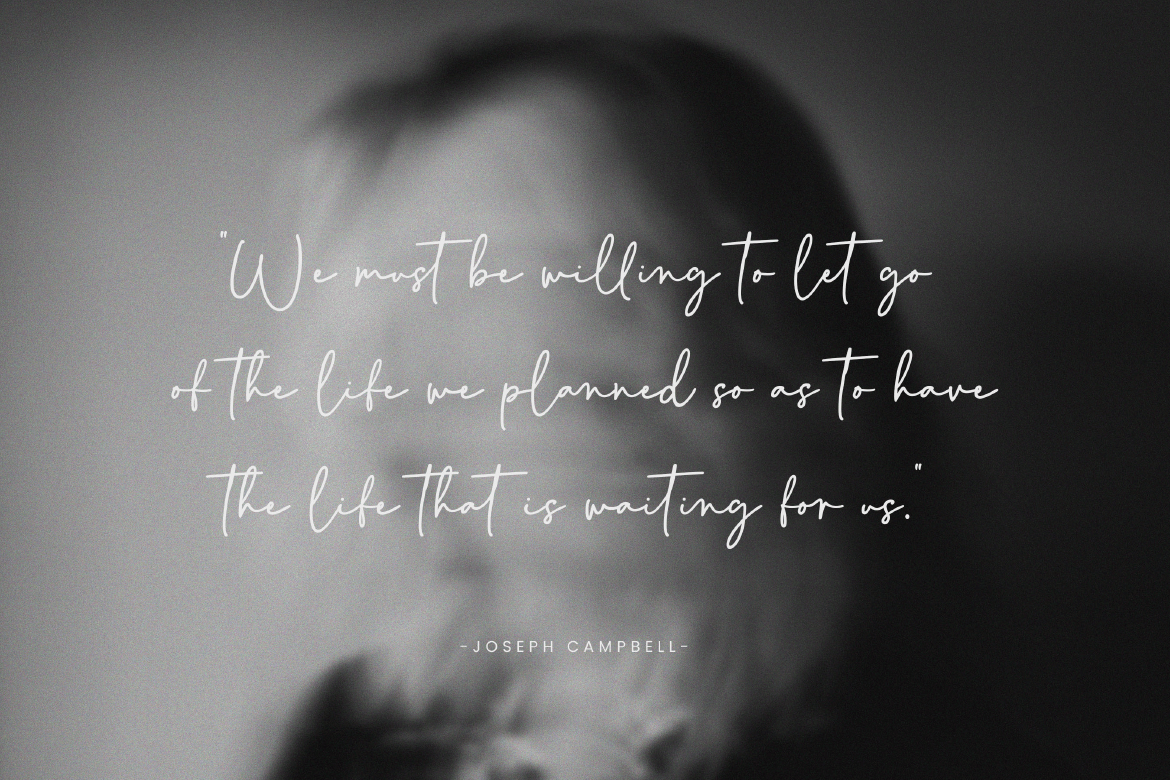 "We must be willing to let go
of the life we planned so as to have
the life that is waiting for us."
-JOSEPH CAMPBELL-